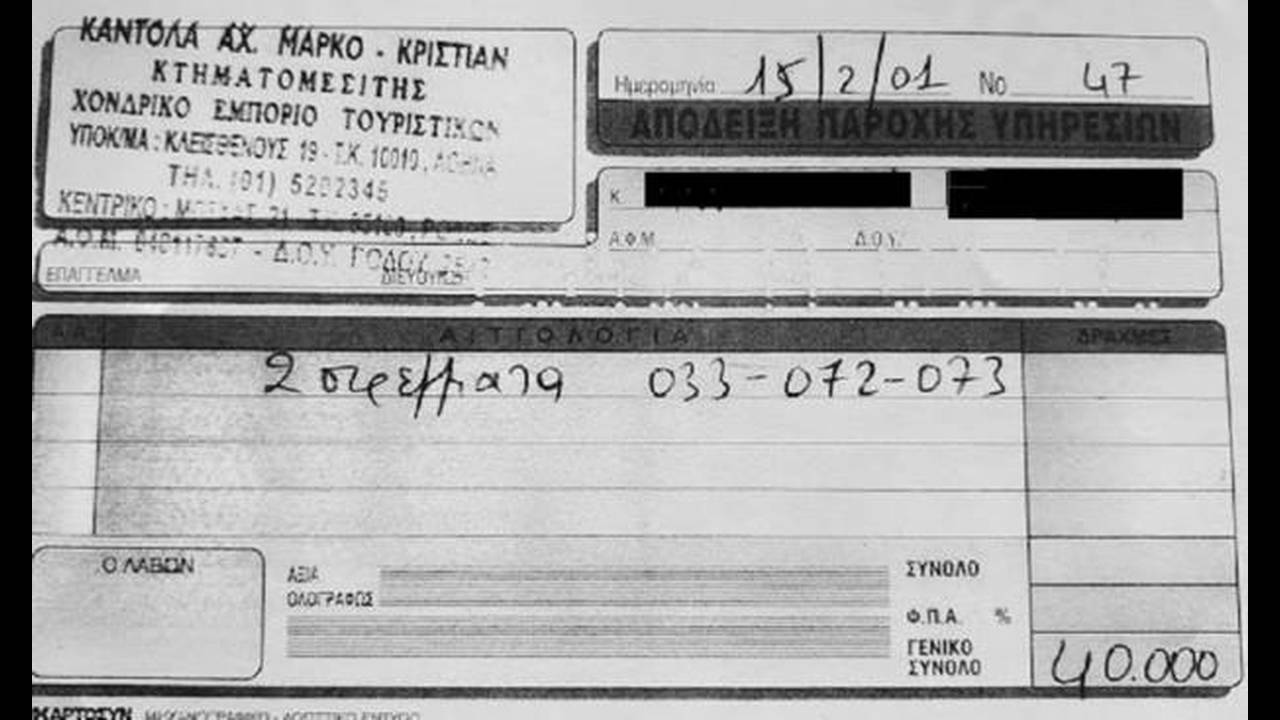 ΚΑΝΤΟΛΑ ΑΧ. ΜΑΡΚΟ - ΚΡΙΣΤΙΑΝ
ΚΤΗΜΑΤΟΜΕΣΙΤΗΣ
ΧΟΝΔΡΙΚΟ ΕΜΠΟΡΙΟ ΤΟΥΡΙΣΤΙΚΩΝ
ΥΠΟΚ/ΜΑ : ΚΛΕΙΣΘΕΝΟΥΣ 19 - Τ.Κ. 10010, ΑΘΗΝΑ
ΤΗΛ. (01) 5202345
ΚΕΝΤΡΙΚΟ :
- Δ.Ο.Υ.
ΕΠΑΓΓΕΛΜΑ ΔΙΕΥΘΥΝΣΗ
Ημερομηνία 15/2/01 Νο 47
ΑΠΟΔΕΙΞΗ ΠΑΡΟΧΗΣ ΥΠΗΡΕΣΙΩΝ
Κ
Α.Φ.Μ. Δ.Ο.Υ.
Α.Α. ΑΙΤΙΟΛΟΓΙΑ ΔΡΑΧΜΕΣ
2 στρέμματα 033-072-073
Ο ΛΑΒΩΝ
ΑΞΙΑ
ΟΛΟΓΡΑΦΩΣ
ΣΥΝΟΛΟ
Φ.Π.Α. %
ΓΕΝΙΚΟ
ΣΥΝΟΛΟ 40.000
ΧΑΡΤΟΣΥΝ